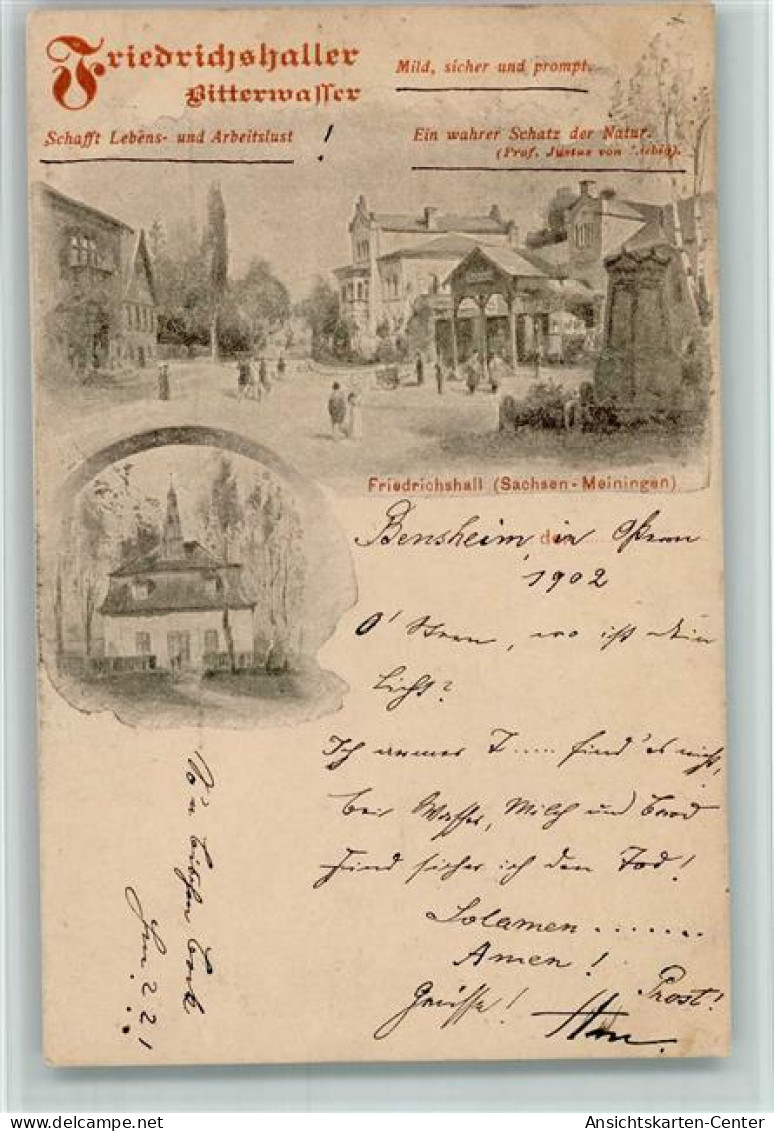 Friedrichshaller
Bitterwasser
Mild, sicher und prompt.
Schafft Lebens- und Arbeitslust !
Ein wahrer Schatz der Natur.
(Prof. Justus von Liebig).
Friedrichshall (Sachsen-Meiningen)
Bensheim, den
1902
O' Stern, wo ist dein
Licht?
Ich armer T.... find' es nicht,
bei Wasser, Milch und Brod
find sicher ich den Tod!
Solamen ......
Amen!
Prost!
Grüsse!
ansichtskarten-center